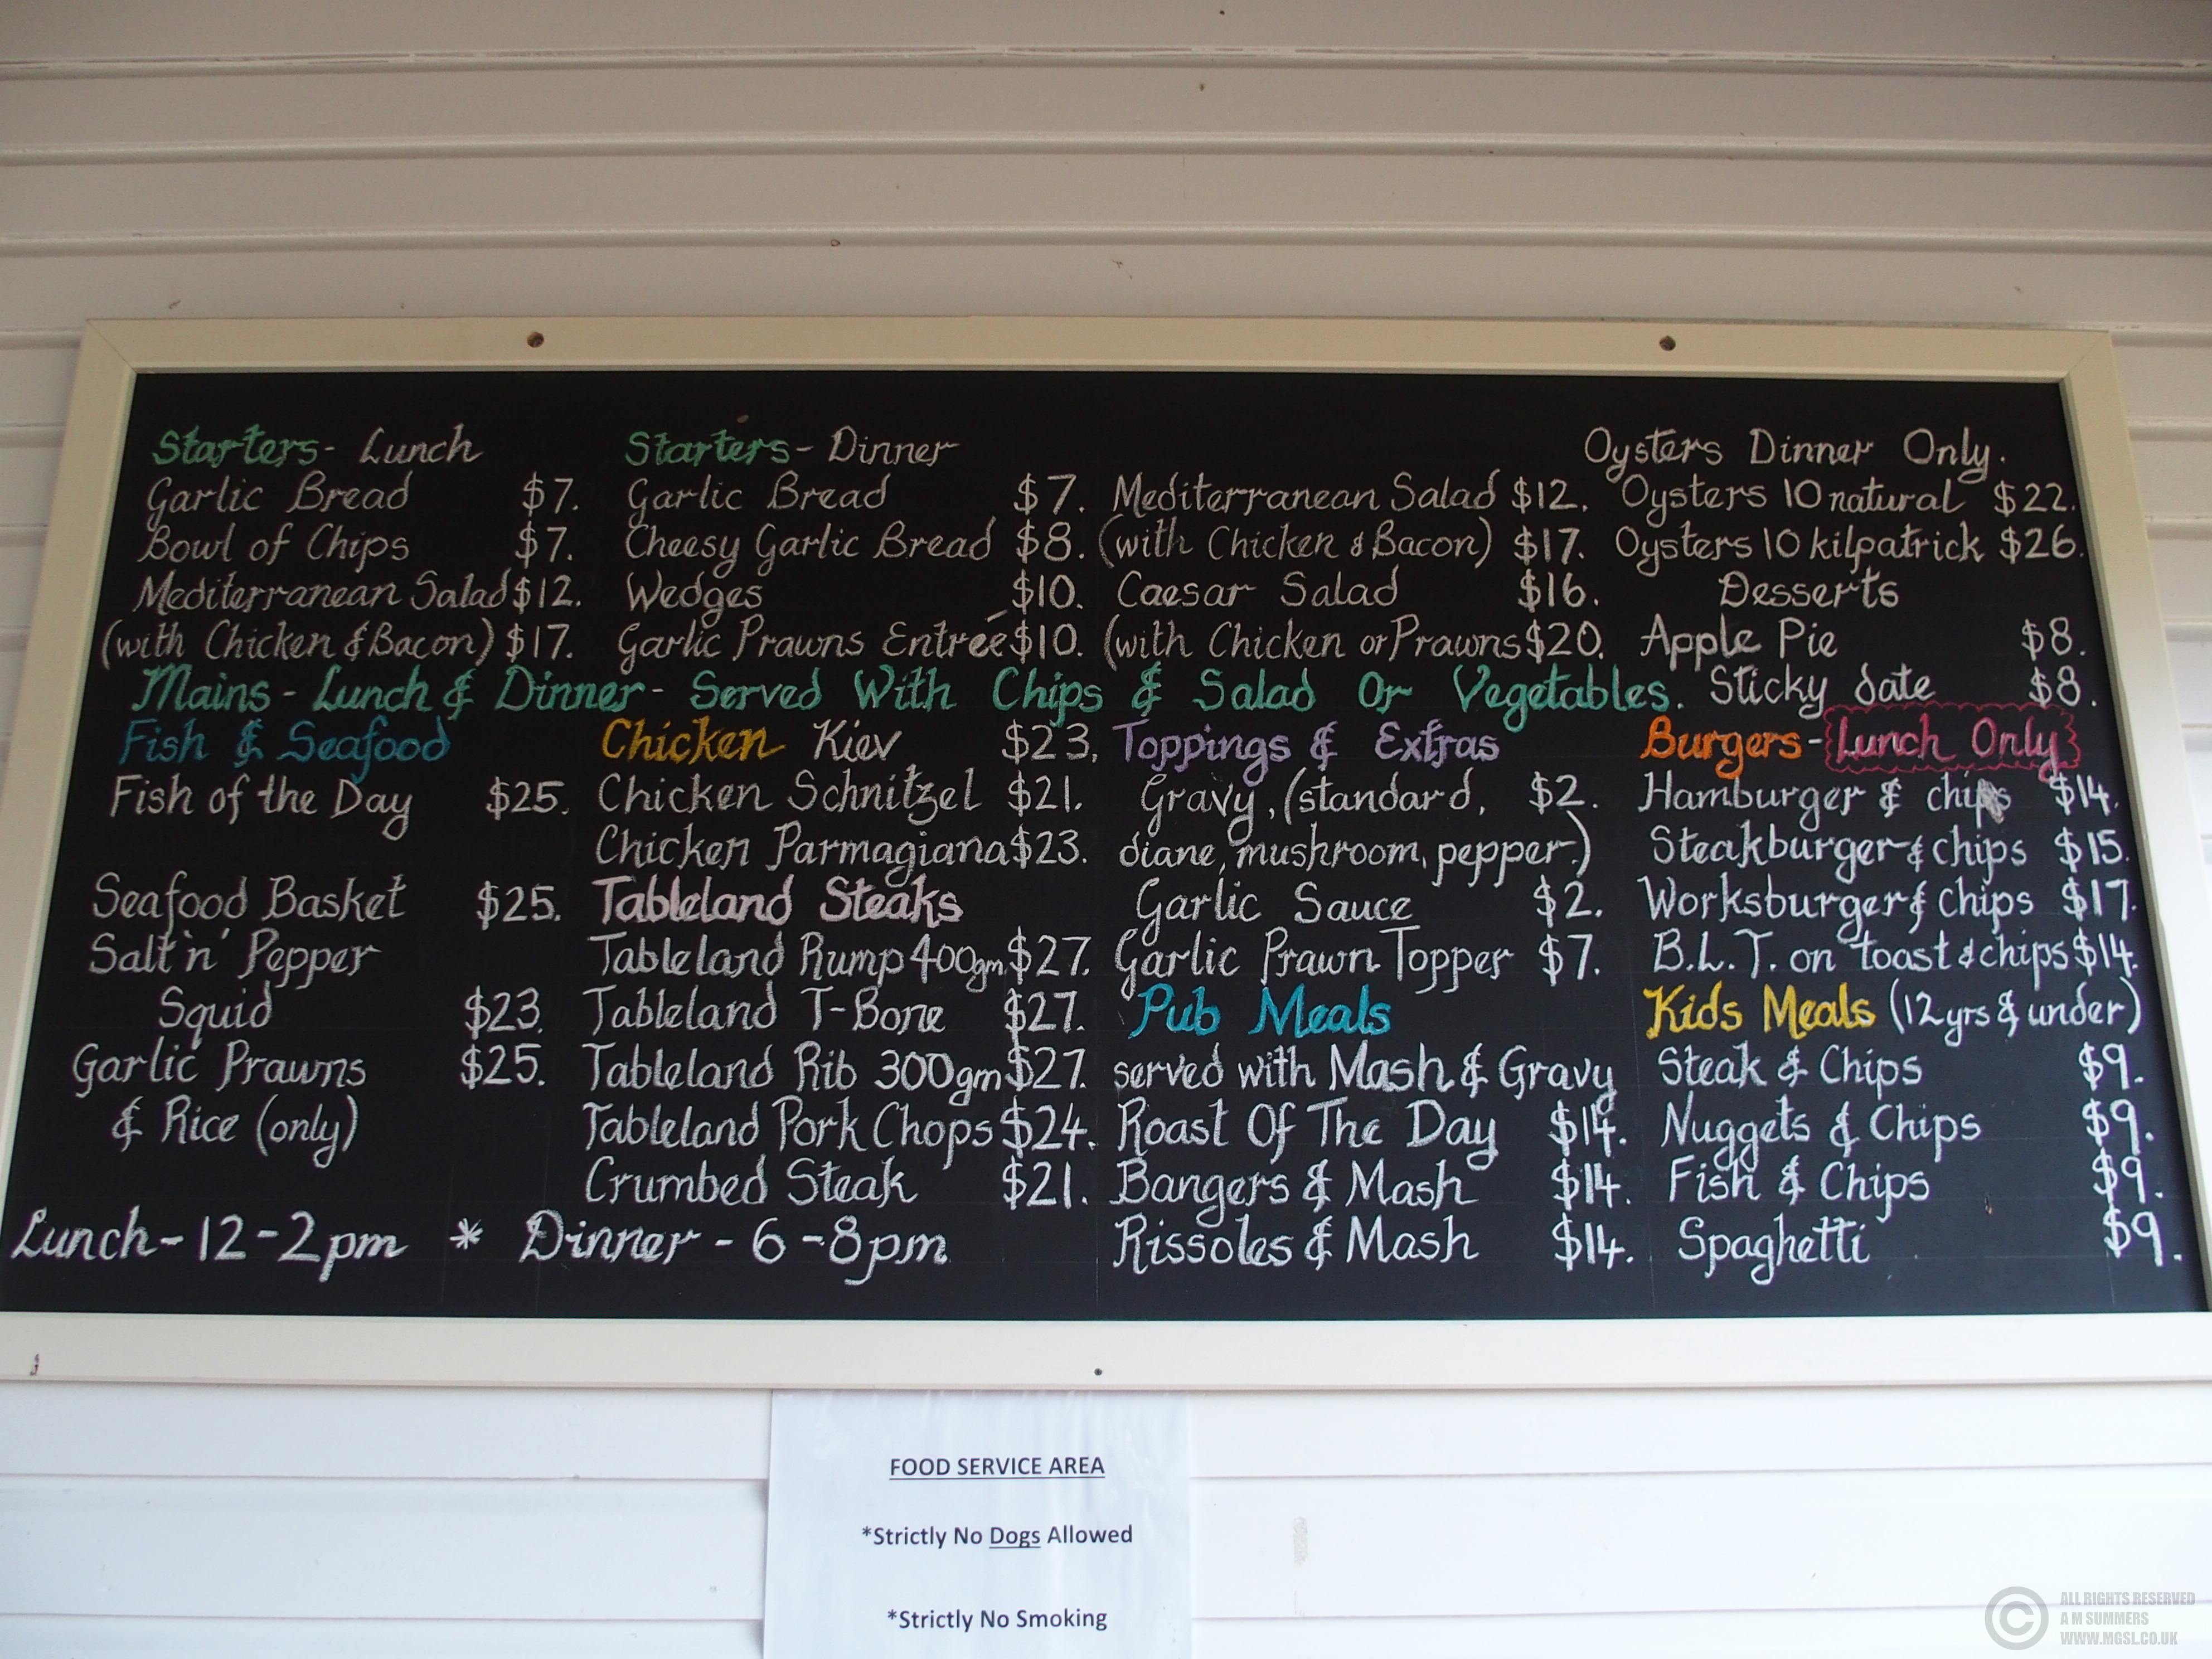 Starters - Lunch
Garlic Bread $7.
Bowl of Chips $7.
Mediterranean Salad $12.
(with Chicken & Bacon) $17.
Starters - Dinner
Garlic Bread $7.
Cheesy Garlic Bread $8.
Wedges $10.
Garlic Prawns Entreé $10.
Mediterranean Salad $12.
(with Chicken & Bacon) $17.
Caesar Salad $16.
(with Chicken or Prawns $20.
Oysters Dinner Only.
Oysters 10 natural $22.
Oysters 10 kilpatrick $26.
Desserts
Apple Pie $8.
Sticky date $8.
Mains - Lunch & Dinner - Served With Chips & Salad Or Vegetables.
Fish & Seafood
Fish of the Day $25.
Seafood Basket $25.
Salt 'n' Pepper
Squid $23.
Garlic Prawns $25.
& Rice (only)
Chicken Kiev $23.
Chicken Schnitzel $21.
Chicken Parmagiana $23.
Tableland Steaks
Tableland Rump 400gm $27.
Tableland T-Bone $27.
Tableland Rib 300gm $27.
Tableland Pork Chops $24.
Crumbed Steak $21.
Toppings & Extras
Gravy, (standard, $2.
diane, mushroom, pepper.)
Garlic Sauce $2.
Garlic Prawn Topper $7.
Pub Meals
served with Mash & Gravy
Roast Of The Day $14.
Bangers & Mash $14.
Rissoles & Mash $14.
Burgers - Lunch Only
Hamburger & chips $14.
Steakburger & chips $15.
Worksburger & chips $17.
B.L.T. on toast & chips $14.
Kids Meals (12yrs & under)
Steak & Chips $9.
Nuggets & Chips $9.
Fish & Chips $9.
Spaghetti $9.
Lunch - 12 - 2pm * Dinner - 6 - 8pm
FOOD SERVICE AREA
*Strictly No Dogs Allowed
*Strictly No Smoking
©
ALL RIGHTS RESERVED
A M SUMMERS
WWW.MGSL.CO.UK